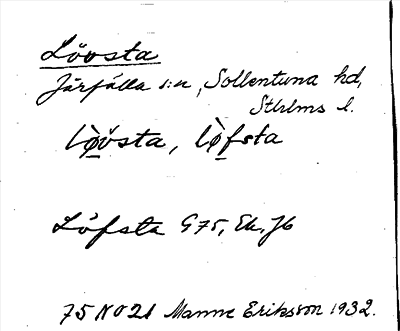 Lövsta
Järfälla s:n, Sollentuna hd,
Sthlms l.
lø̀vsta, lø̀fsta
Löfsta G75, Ek. Jb
75 NO 21 Manne Eriksson 1932.